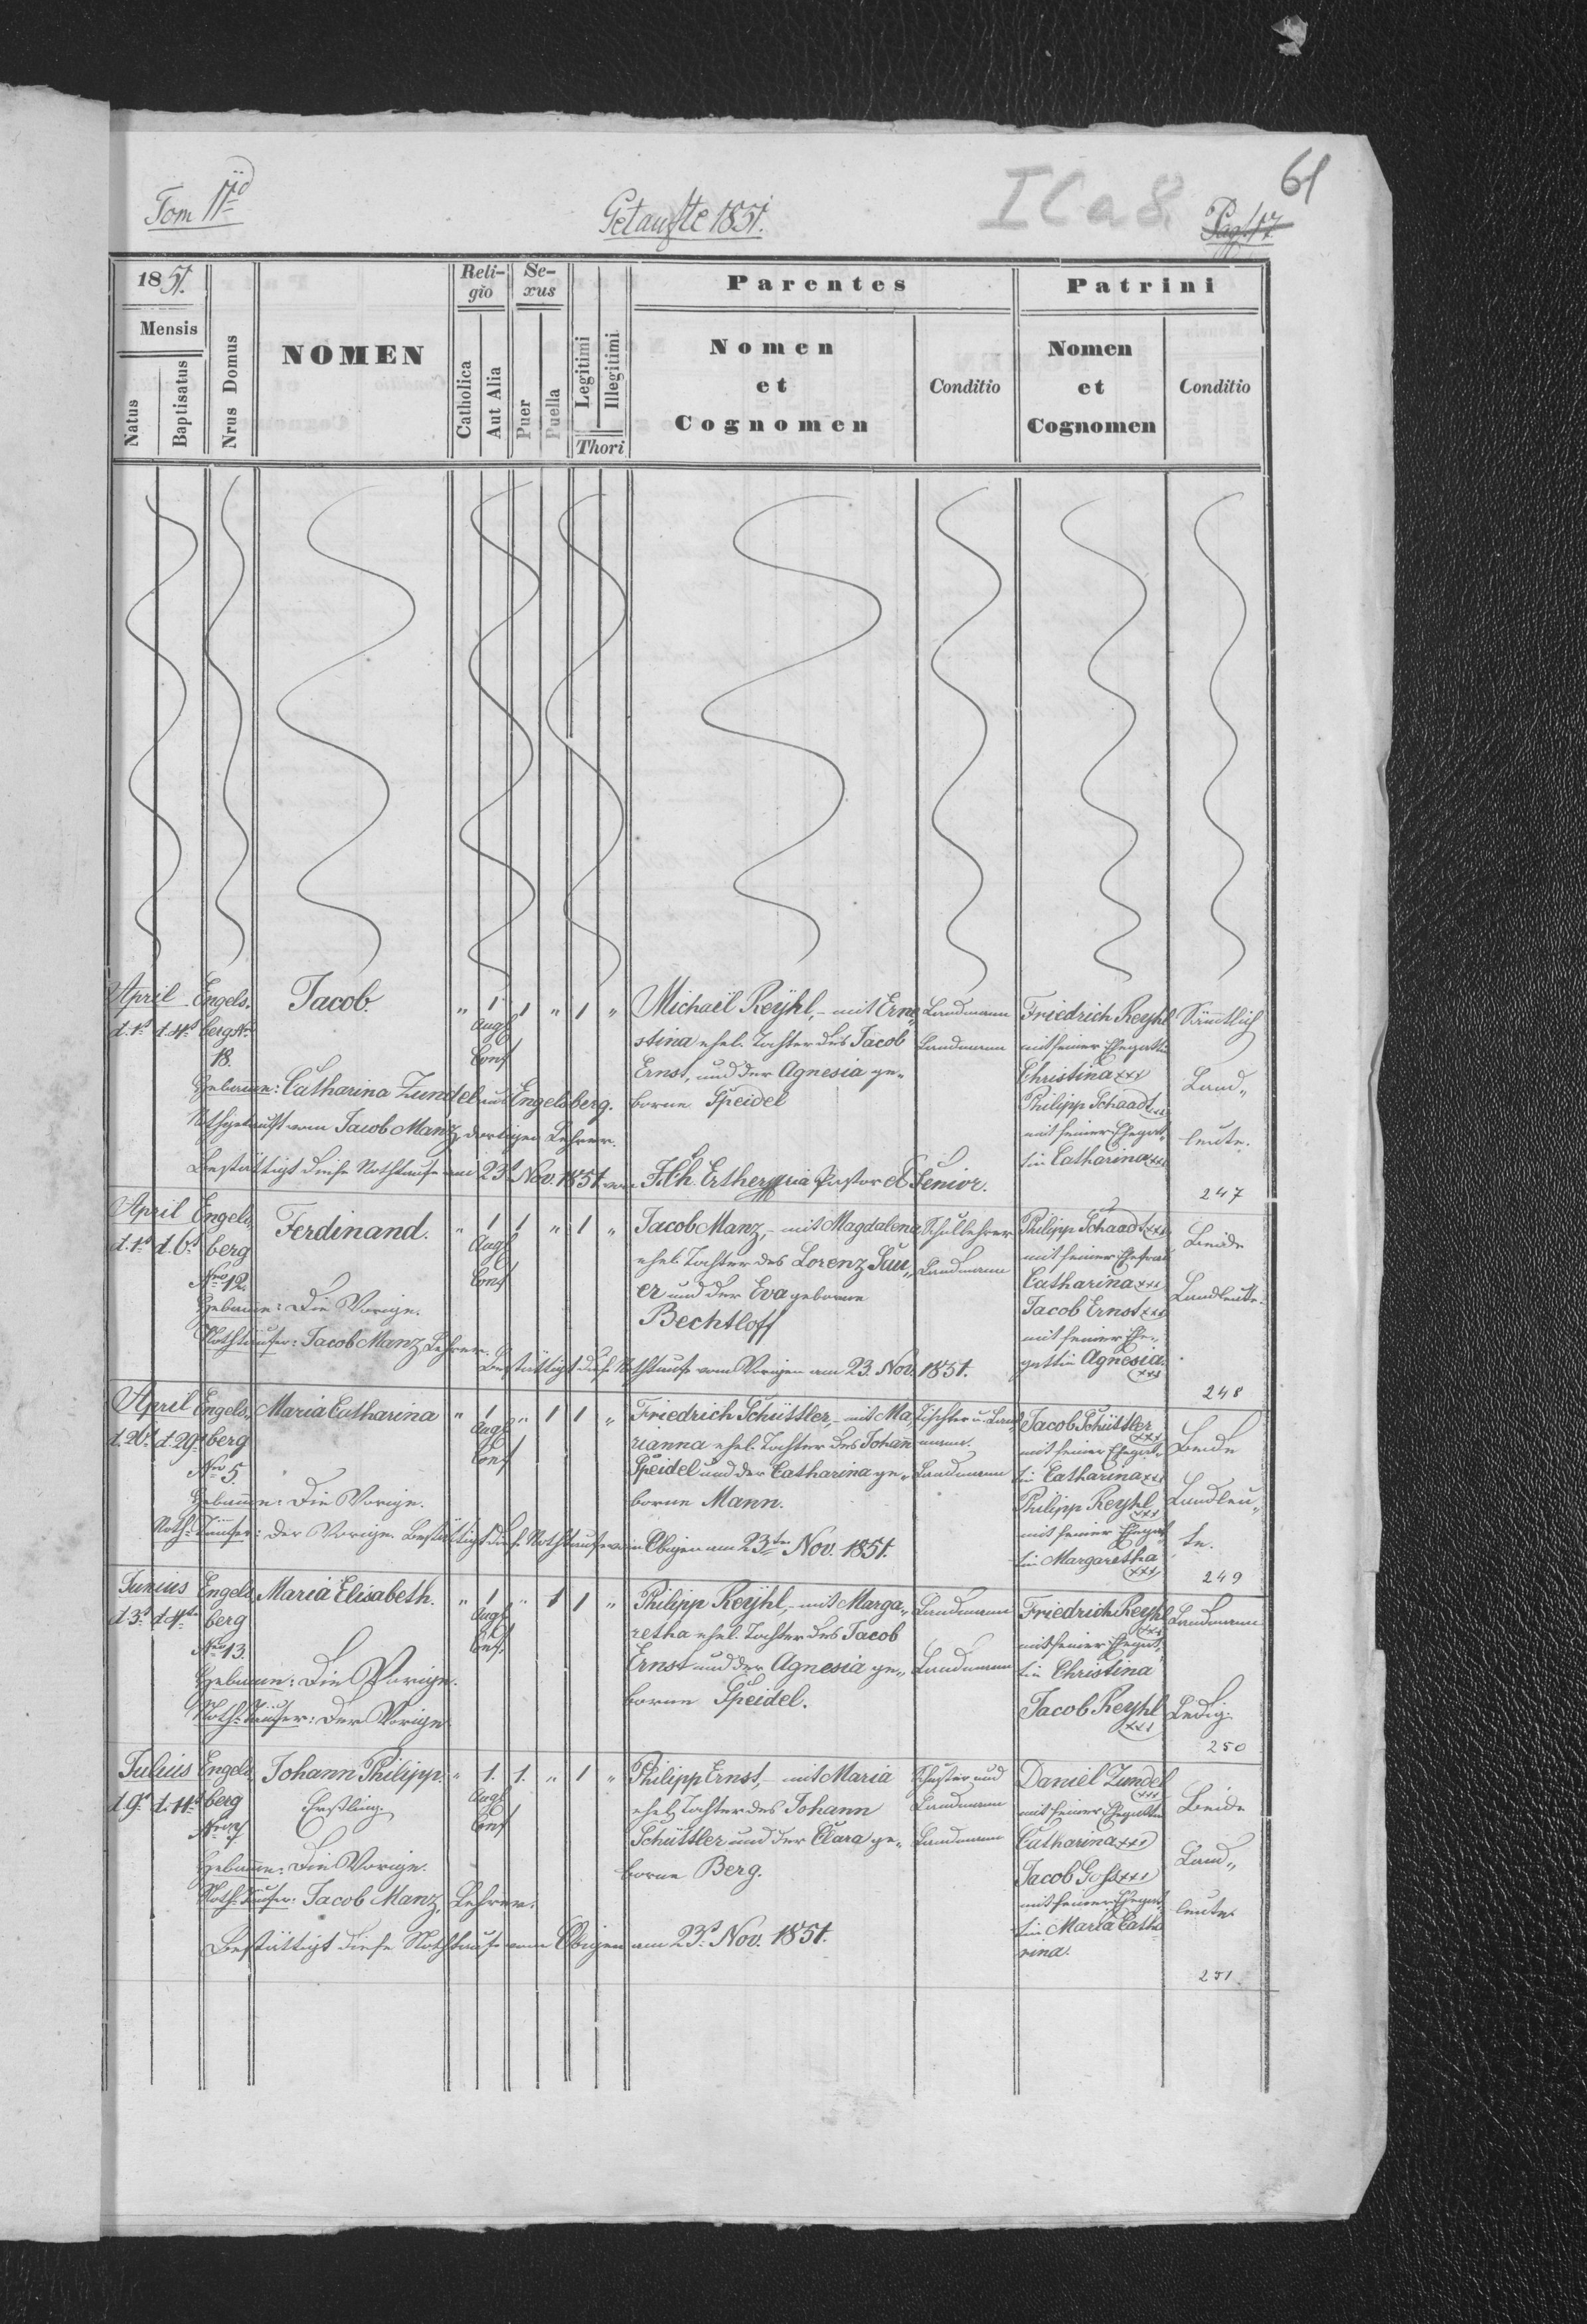 61
Tom II
Getaufte 1851.
I C a 8.
Pag. 17
1851.
Mensis
Natus
Baptisatus
Nrus Domus
NOMEN
Reli-
gio
Catholica
Aut Alia
Se-
xus
Puer
Puella
Legitimi
Illegitimi
Thori
Parentes
Nomen
et
Cognomen
Conditio
Patrini
Nomen
et
Cognomen
Conditio
April
d. 1t d. 4t
Engels-
berg Nro
18.
Jacob.
" 1 1 " 1 "
Augs
Conf
Michaël Reÿhl, - mit Erne-
stina ehel. Tochter des Jacob
Ernst, und der Agnesia ge-
borne Speidel
Landmann
Landmann
Friedrich Reyhl
mit seiner Ehegattin
Christina xxx
Philipp Schaadt xxx
mit seiner Ehegat-
tin Catharina xxx
Sämtlich
Land-
leute.
Hebamme: Catharina Zundel aus Engelsberg.
Nothgetauft vom Jacob Manz, dortigen Lehrer.
Bestättigt diese Nothtaufe am 23t Nov. 1851. von Pastor et Senior.
247
April
d. 1t d. 6t
Engels-
berg
Nro 12.
Ferdinand.
" 1 1 " 1 "
Augs
Conf
Jacob Manz, - mit Magdalena
ehel. Tochter des Lorenz Sau-
er und der Eva geborne
Bechtloff
Schullehrer
Landmann
Philipp Schaadt xxx
mit seiner Ehefrau
Catharina xxx
Jacob Ernst xxx
mit seiner Ehe-
gattin Agnesia.
xxx
Beide
Landleute.
Hebamme: Die Vorige.
Nothtäufer: Jacob Manz Lehrer.
Bestättigt diese Nothtaufe vom Vorigen am 23. Nov. 1851.
248
April
d. 20t d. 29t
Engels-
berg
Nro 5.
Maria Catharina
" 1 " 1 1 "
Augs
Conf
Friedrich Schüttler, - mit Ma-
rianna ehel. Tochter des Johann
Speidel und der Catharina ge-
borne Mann.
Tischler u. Land-
mann.
Landmann
Jacob Schüttler
xxx
mit seiner Ehegat-
tin Catharina xxx
Philipp Reyhl
xxx
mit seiner Ehegat-
tin Margaretha
xxx
Beide
Landleu-
te.
Hebamme: Die Vorige.
Noth-Täufer: der Vorige. Bestättigt diese Nothtaufe vom Obigen am 23ten Nov. 1851.
249
Junius
d. 3t d. 4te
Engels-
berg
Nro 13.
Maria Elisabeth.
" 1 " 1 1 "
Augs
Conf.
Philipp Reÿhl, - mit Marga-
retha ehel. Tochter des Jacob
Ernst und der Agnesia ge-
borne Speidel.
Landmann
Landmann
Friedrich Reyhl
xxx
mit seiner Ehegat-
tin Christina
Jacob Reyhl
xxx
Landmann
Ledig.
Hebamme: Die Vorige.
Noth-Täufer: Der Vorige
250
Julius
d. 9t d. 11t
Engels-
berg
Johann Philipp.
Erstling.
" 1. 1. " 1 "
Augs
Conf
Philipp Ernst, - mit Maria
ehel. Tochter des Johann
Schüttler und der Clara ge-
borne Berg.
Schuster und
Landmann
Landmann
Daniel Zundel
xxx
mit seiner Ehegattin
Catharina xxx
Jacob xxx
mit seiner Ehegat-
tin Maria Catha-
rina.
Beide
Land-
leute.
Hebamme: Die Vorige.
Noth-Täufer: Jacob Manz, Lehrer.
Bestättigt diese Nothtaufe vom Obigen am 23t Nov. 1851.
251